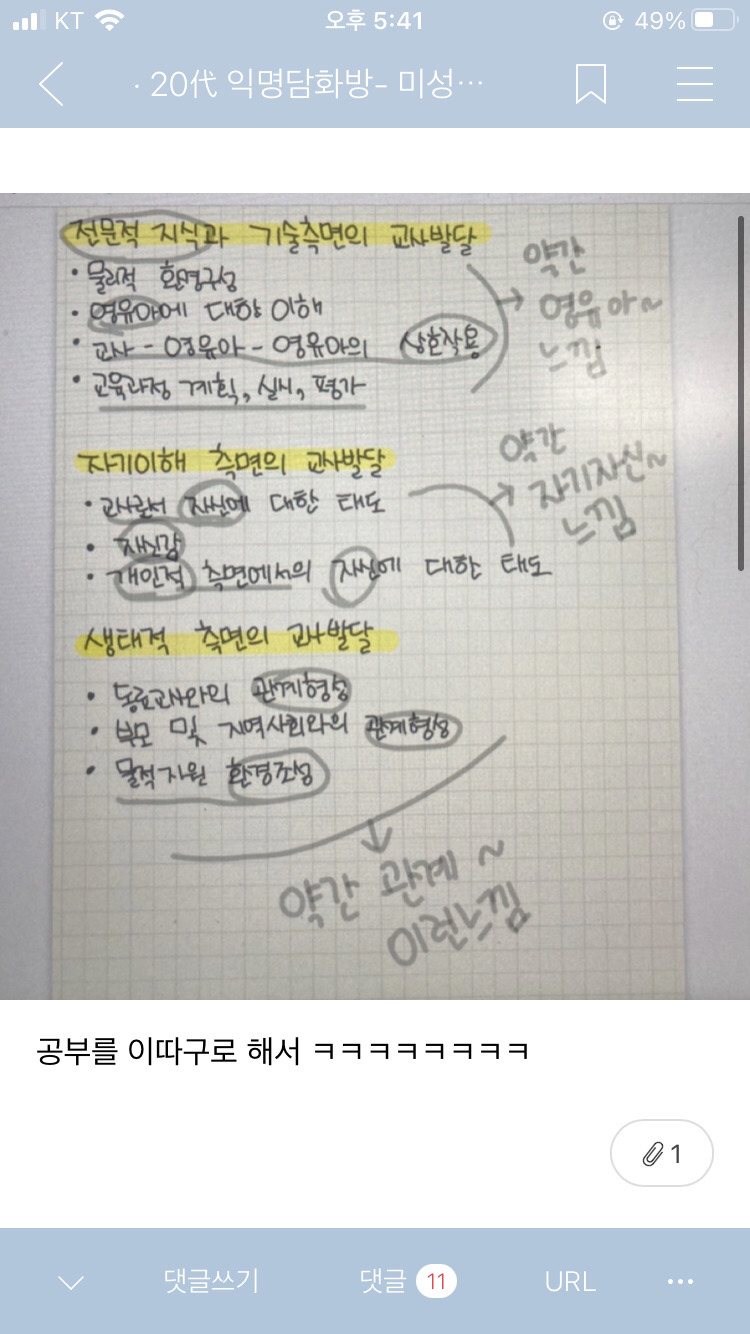 KT 오후 5:41 49%
· 20代 익명담화방- 미성···
전문적 지식과 기술측면의 교사발달
• 물리적 환경구성
• 영유아에 대한 이해
• 교사 - 영유아 - 영유아의 상호작용
• 교육과정 계획, 실시, 평가
약간
영유아~
느낌
자기이해 측면의 교사발달
• 교사로서 자신에 대한 태도
• 자신감
• 개인적 측면에서의 자신에 대한 태도
약간
자기자신~
느낌
생태적 측면의 교사발달
• 동료교사와의 관계형성
• 부모 및 지역사회와의 관계형성
• 물적자원 환경조성
약간 관계~
이런느낌
공부를 이따구로 해서 ㅋㅋㅋㅋㅋㅋㅋㅋ
1
댓글쓰기 댓글 11 URL ···